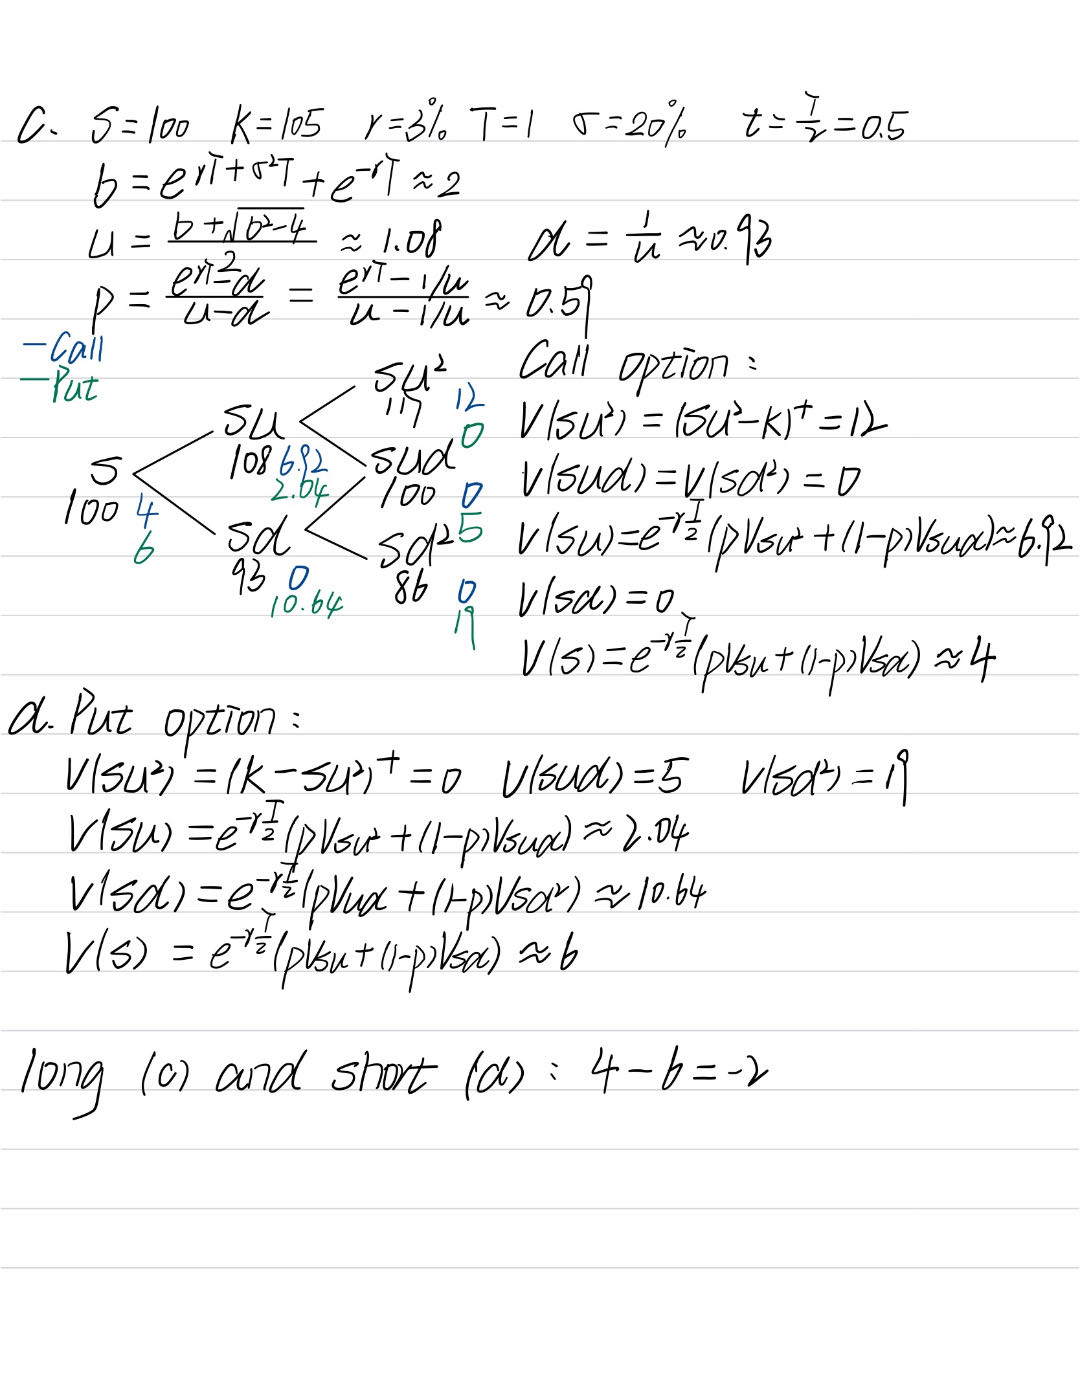 C. S=100 K=105 r=3% T=1 σ=20% t=T/2=0.5
b=e^{rT+σ²T}+e^{-rT}≈2
u=(b+√(b²-4))/2≈1.08 d=1/u≈0.93
p=(e^{rT}-d)/(u-d)=(e^{rT}-1/u)/(u-1/u)≈0.59
-Call
-Put
S
100 4
6
Su
108 6.92
2.04
Sd
93 0
10.64
Su²
117 12
0
Sud
100 0
5
Sd²
86 0
19
Call option:
V(Su²)=(Su²-K)⁺=12
V(Sud)=V(Sd²)=0
V(Su)=e^{-rT/2}(pVsu²+(1-p)Vsud)≈6.92
V(Sd)=0
V(S)=e^{-rT/2}(pVsu+(1-p)Vsd)≈4
d. Put option:
V(Su²)=(K-Su²)⁺=0 V(Sud)=5 V(Sd²)=19
V(Su)=e^{-rT/2}(pVsu²+(1-p)Vsud)≈2.04
V(Sd)=e^{-rT/2}(pVud+(1-p)Vsd²)≈10.64
V(S)=e^{-rT/2}(pVsu+(1-p)Vsd)≈6
long (c) and short (d): 4-6=-2